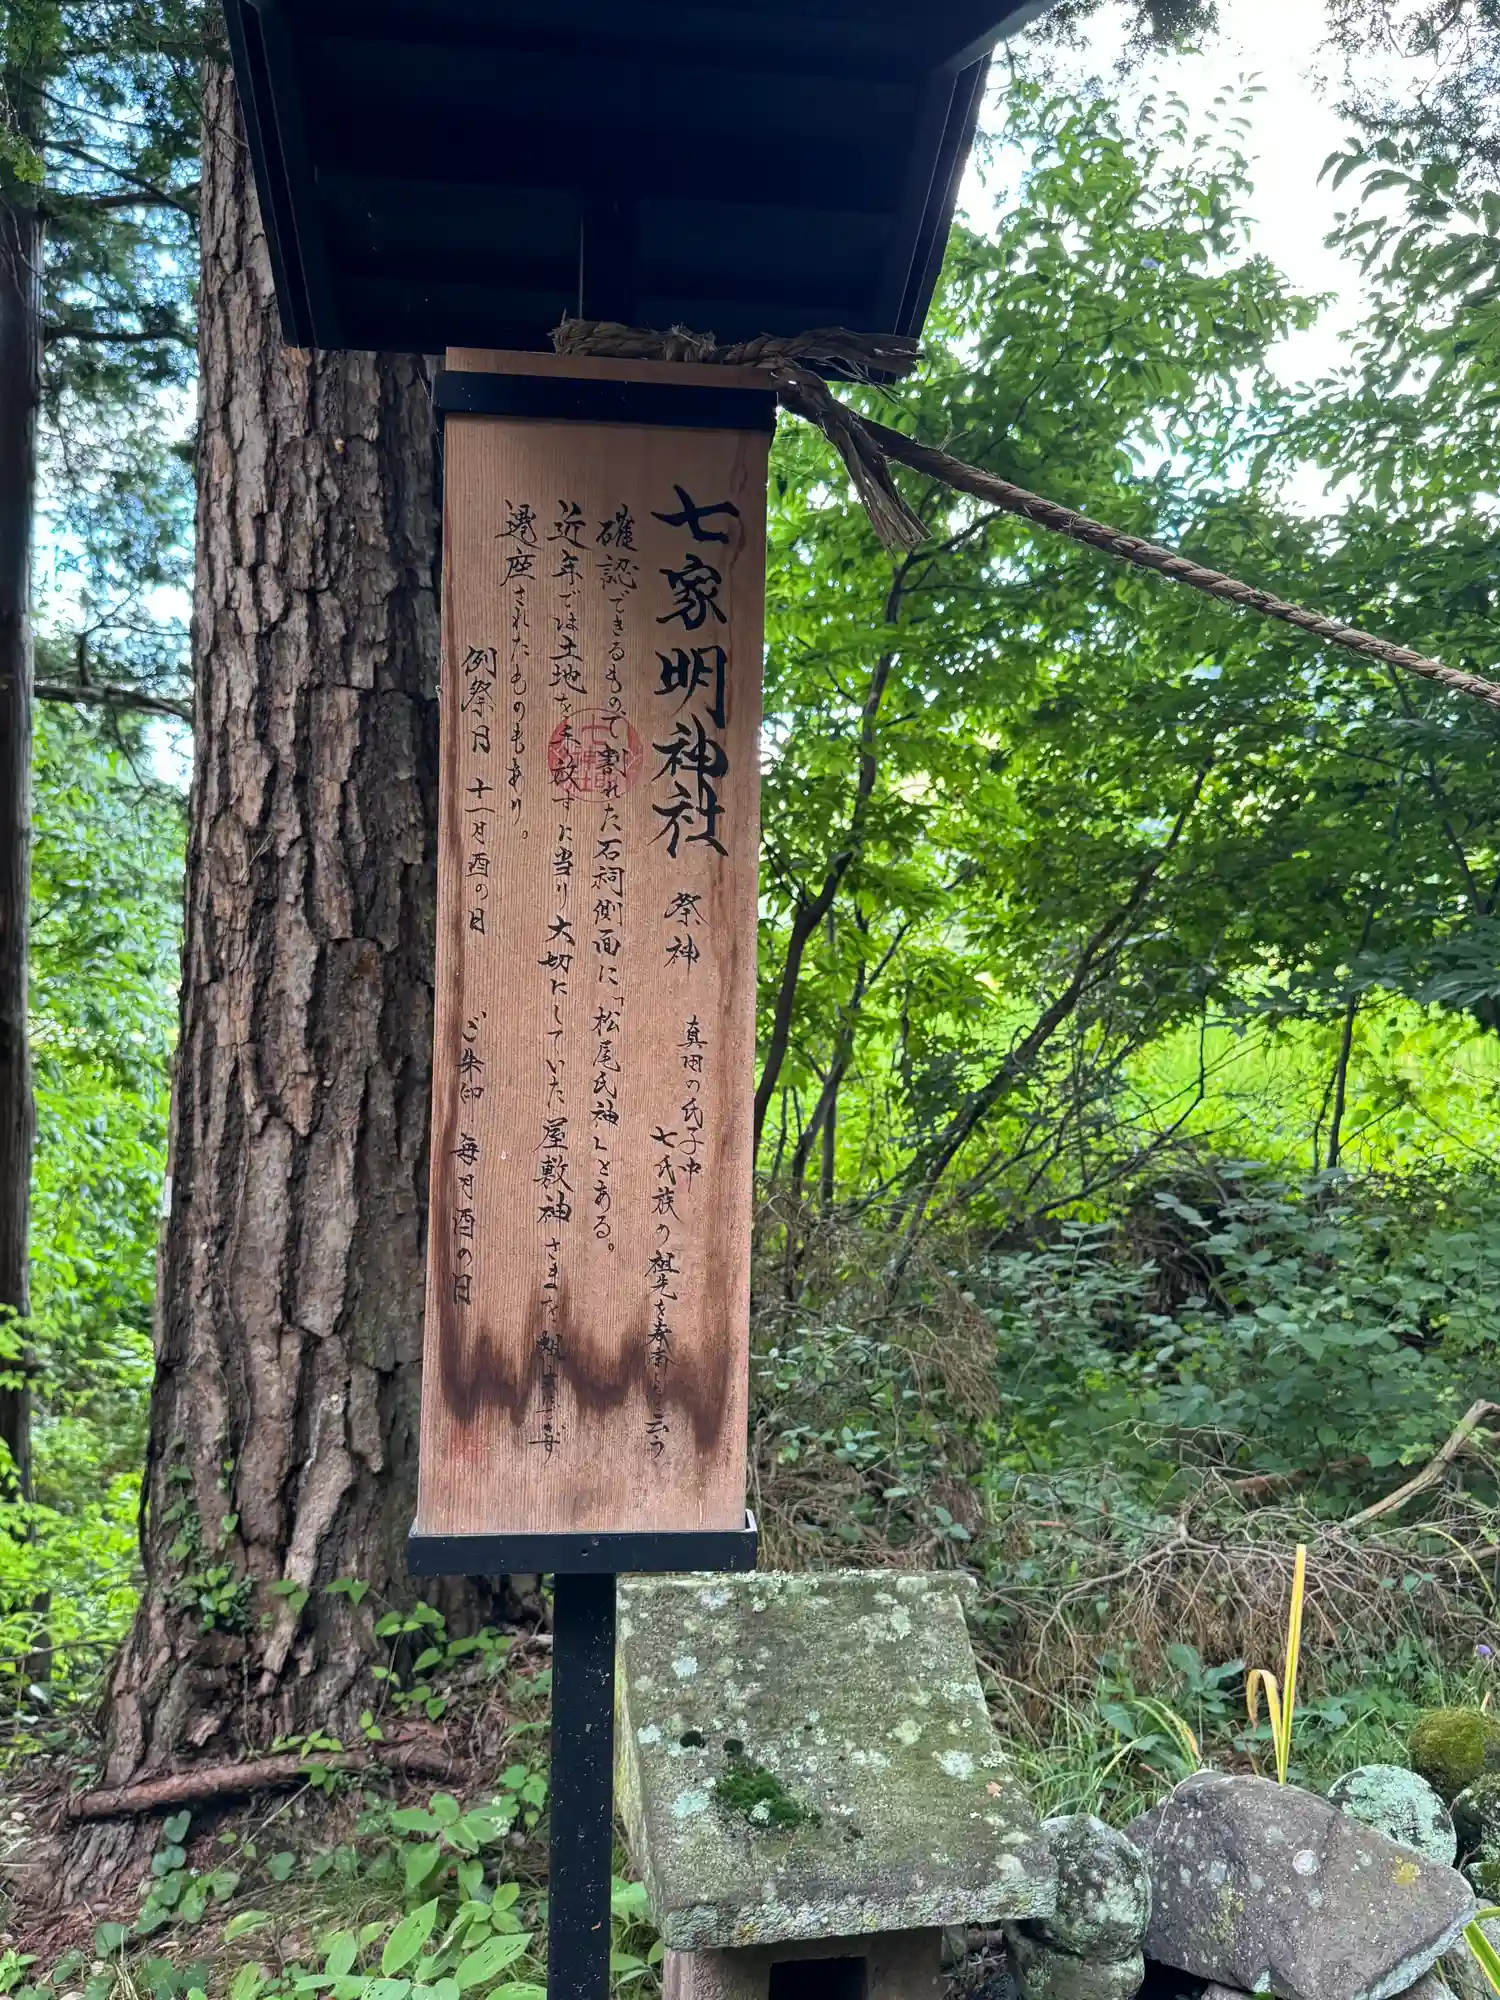 七家明神社 祭神 真田の氏子中
七氏族の祖先を奉斎と云う
確認できるもので割れた石祠側面に「松尾氏神」とある。
近年では土地を手放すに当り大切にしていた屋敷神さまを
遷座されたものもあり。
例祭日 十一月酉の日 ご朱印 毎月酉の日